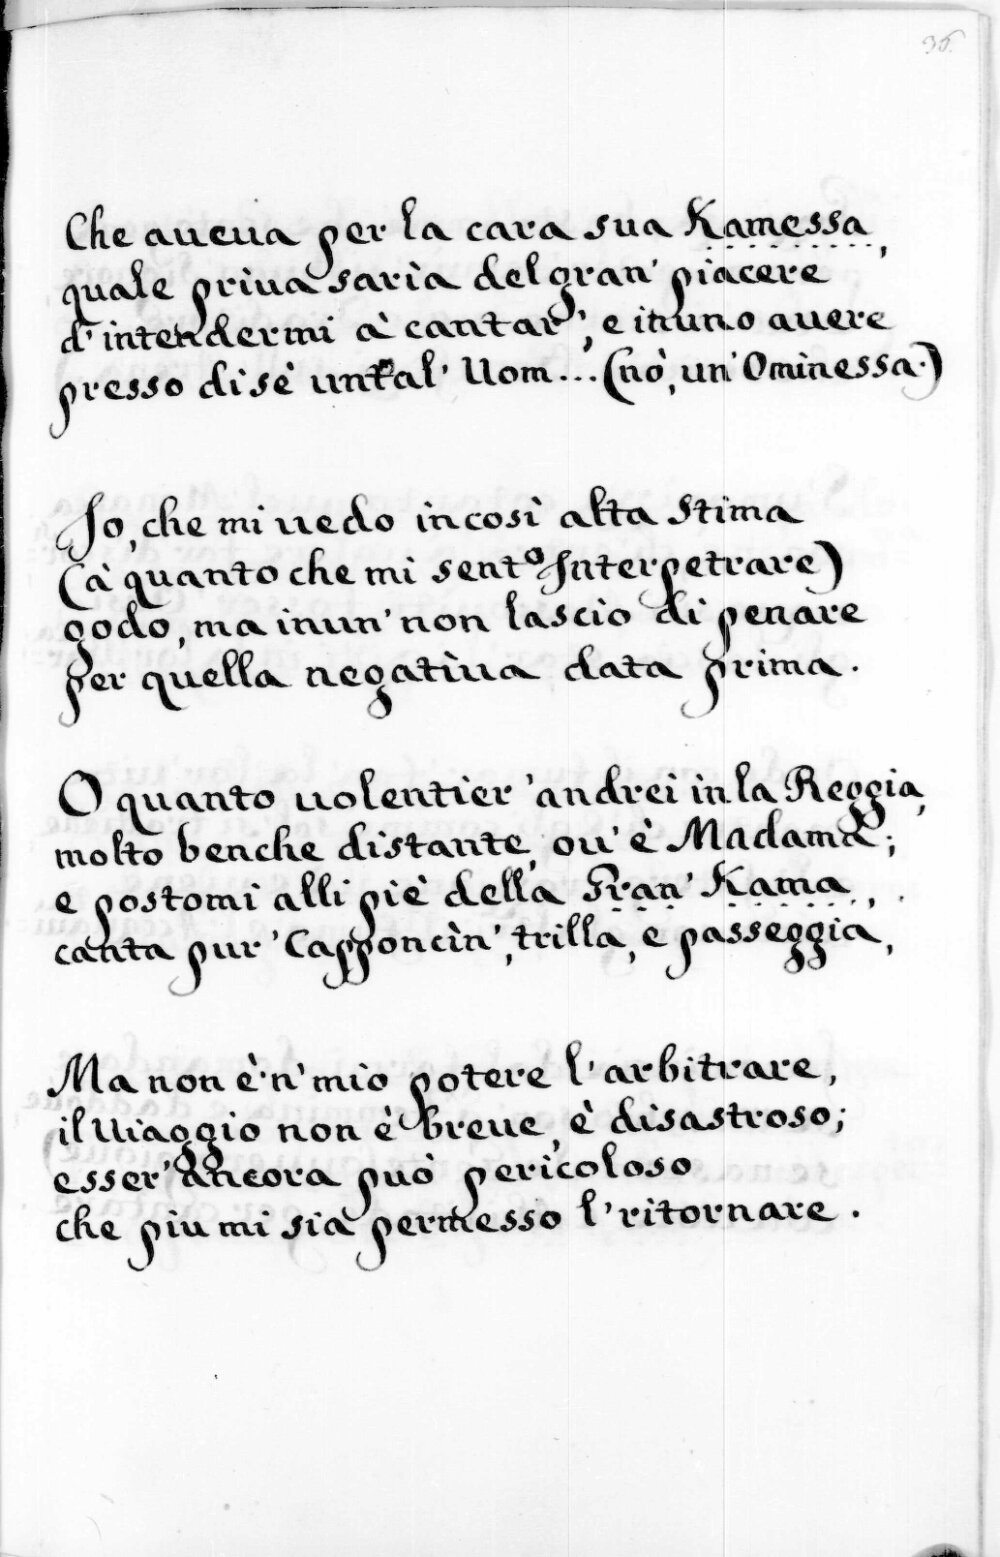 36.
Che aueua per la cara sua Kamessa,
quale priua sarìa del gran' piacere
d'intendermi à cantar', e in uno auere
presso di sè un tal' Uom... (nò, un' Ominessa.)
Io, che mi uedo in così alta stima
(à quanto che mi sentº Interpetrare)
godo, ma in un' non lascio di penare
per quella negatiua data prima.
O quanto uolentier' andrei in la Reggia,
molto benche distante, ou' è Madama;
e postomi alli piè della Gran' Kama,
canta pur' Capponcin', trilla, e passeggia,
Ma non è 'n' mio potere l'arbitrare,
il Uiaggio non è breue, è disastroso;
esser' ancora può pericoloso
che piu mi sia permesso l'ritornare.